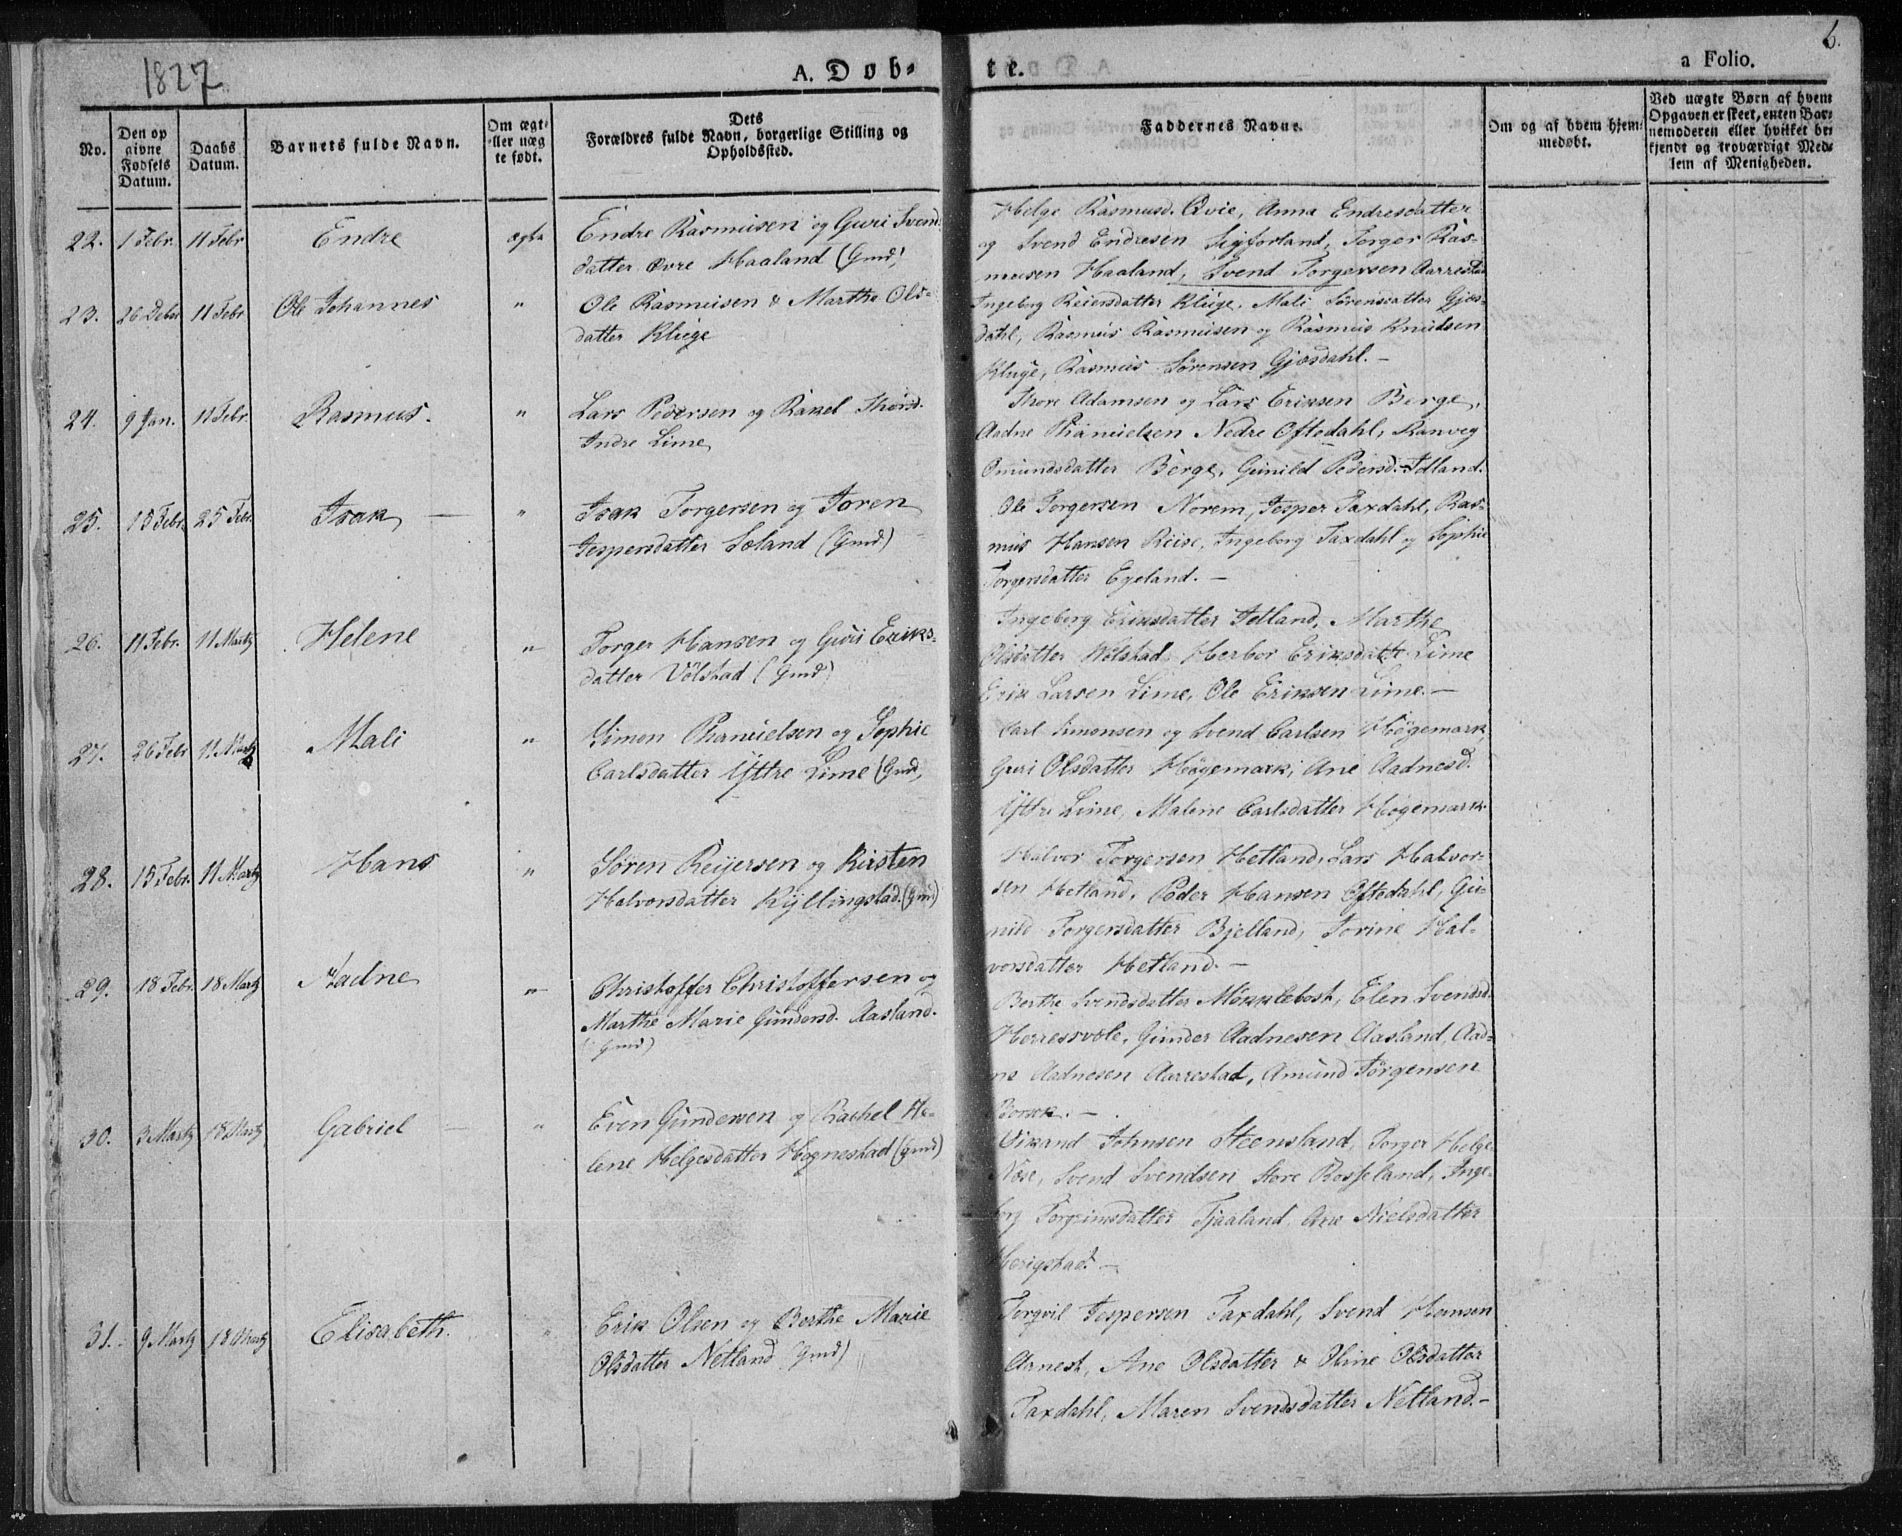 1827
A. Døb-
te.
a Folio.
6.
No.
Den op
givne
Fødsels
Datum.
Daabs
Datum.
Barnets fulde Navn.
Om ægt-
eller uæg
te født.
Dets
Forældres fulde Navn, borgerlige Stilling og
Opholdssted.
Faddernes Navne.
Om og af hvem hjem-
medøbt.
Ved uægte Børn af hvem
Opgaven er skeet, enten Bar-
nemoderen eller hvilket be
kjendt og troværdigt Med-
lem af Menigheden.
22. 1 Febr. 11 Febr Endre ægte
Endre Rasmusen og Guri Svend
datter øvre Haaland (Gmd)
Helge Rasmusd. Qvie, Anna Endresdatter
og Svend Endresen Sigforland, Torger Ras-
musen Haaland, Svend Torgersen Aarrestad
23. 26 Debr 11 Febr Ole Johannes "
Ole Rasmusen & Marthe Ols-
datter Kluge
Ingeborg Reiersdatter Kluge, Mali Sørensdatter Gjes-
dahl, Rasmus Rasmusen og Rasmus Knudsen
Kluge, Rasmus Sørensen Gjøsdahl. -
24. 9 Jan. 11 Febr Rasmus. "
Lars Pedersen og Rakel Thord.
Indre Lime
Thore Adamsen og Lars Eriksen Berge,
Aadne Phanuelsen Nedre Oftedahl, Ranveg
Omundsdatter Berge, Gunild Pedersd. Idland.
25. 15 Febr. 25 Febr. Isak - "
Isak Torgersen og Joren
Jespersdatter Soland (Gmd)
Ole Torgersen Norem, Jesper Taxdahl, Ras-
mus Hansen Reise, Ingeborg Taxdahl og Sophie
Torgersdatter Egeland. -
26. 11 Febr. 11 Martz Helene "
Torger Hansen og Guri Eriks-
datter Vølstad (Gmd)
Ingeborg Eriksdatter Idland, Marthe
Olsdatter Wølstad, Herbor Eriksdatt Lime
Erik Larsen Lime, Ole Eriksen Lime. -
27. 26 Febr 11 Martz Mali "
Simon Phanuelsen og Sophie
Carlsdatter Yttre Lime (Gmd,
Carl Simonsen og Svend Carlsen Høgemark
Guri Olsdatter Høgemark, Ane Aadnesd.
Yttre Lime, Malene Carlsdatter Høgemark
28. 15 Febr. 11 Martz Hans "
Søren Reijersen og Kirsten
Halvorsdatter Kyllingstad. (Gmd)
Halvor Torgersen Hetland, Lars Halvor-
sen Hetland, Peder Hansen Oftedahl, Gu-
nild Torgersdatter Bjelland, Torine Hal-
vorsdatter Hetland. -
29. 18 Febr. 18 Martz Aadne "
Christoffer Christoffersen og
Marthe Marie Gundersd. Aasland.
(Gmd)
Berthe Svendsdatter Møkklebost, Elen Svendsd.
Herresvole, Gunder Aadnesen Aasland, Aad-
ne Aadnesen Aarrestad, Amund Jørgensen
Bokk. -
30. 3 Martz 18 Martz Gabriel - "
Even Gundersen og Rachel He-
lene Helgesdatter Hognestad (Gmd)
Vikand Johnsen Steensland, Torger Helge
Nøse, Svend Svendsen Store Rosseland, Inge-
borg Torgrimsdatter Tjaaland, Ane Nielsdatter
Herigstad. -
31. 9 Martz 18 Martz Elisabeth. "
Erik Olsen og Berthe Marie
Olsdatter Netland (Gmd)
Torgvil Jespersen Taxdahl, Svend Hansen
Aarrest, Ane Olsdatter & Oline Olsdatter
Taxdahl, Maren Svendsdatter Netland. -